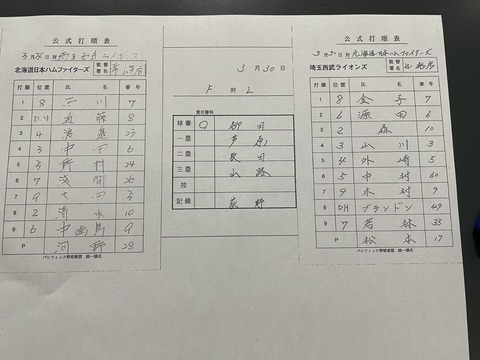 公式打順表
3月30日対埼玉西武ライオンズ
北海道日本ハムファイターズ 監督署名
打順 位置 打者 番号
1 8 西川 7
2 DH 近藤 8
3 4 渡邉 23
4 3 中田 6
5 5 野村 24
6 7 淺間 26
7 9 大田 3
8 2 清水 10
9 6 中島 9
P 河野 28
パシフィック野球連盟 統一様式
3月30日
F 対 L
責任審判
球審 ○ 柳田
一塁 芦原
二塁 牧田
三塁 山路
控
記録 荻野
公式打順表
3月30日対北海道日本ハムファイターズ
埼玉西武ライオンズ 監督署名
打順 位置 打者 番号
1 8 金子 7
2 6 源田 6
3 2 森 10
4 3 山川 3
5 4 外崎 5
6 5 中村 60
7 9 木村 9
8 DH ブランドン 49
9 7 若林 35
P 松本 17
パシフィック野球連盟 統一様式